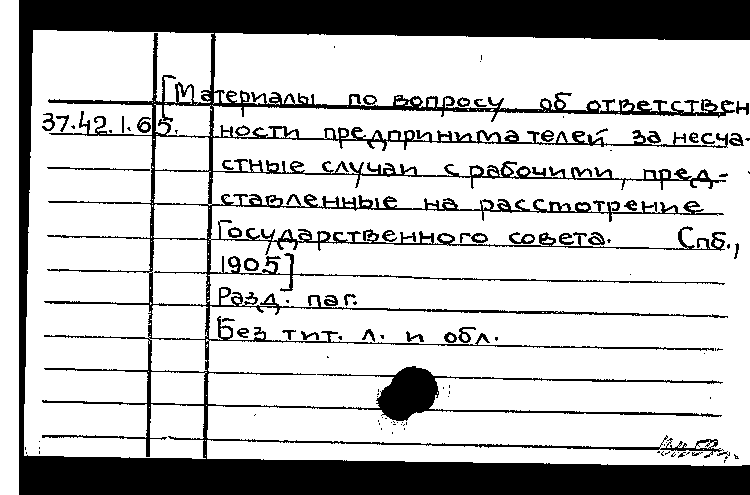 [Материалы по вопросу об ответствен
37.42.1.65. ности предпринимателей за несча-
стные случаи с рабочими, пред-
ставленные на рассмотрение
Государственного совета. Спб.,
1905]
Разд. паг.
Без тит. л. и обл.